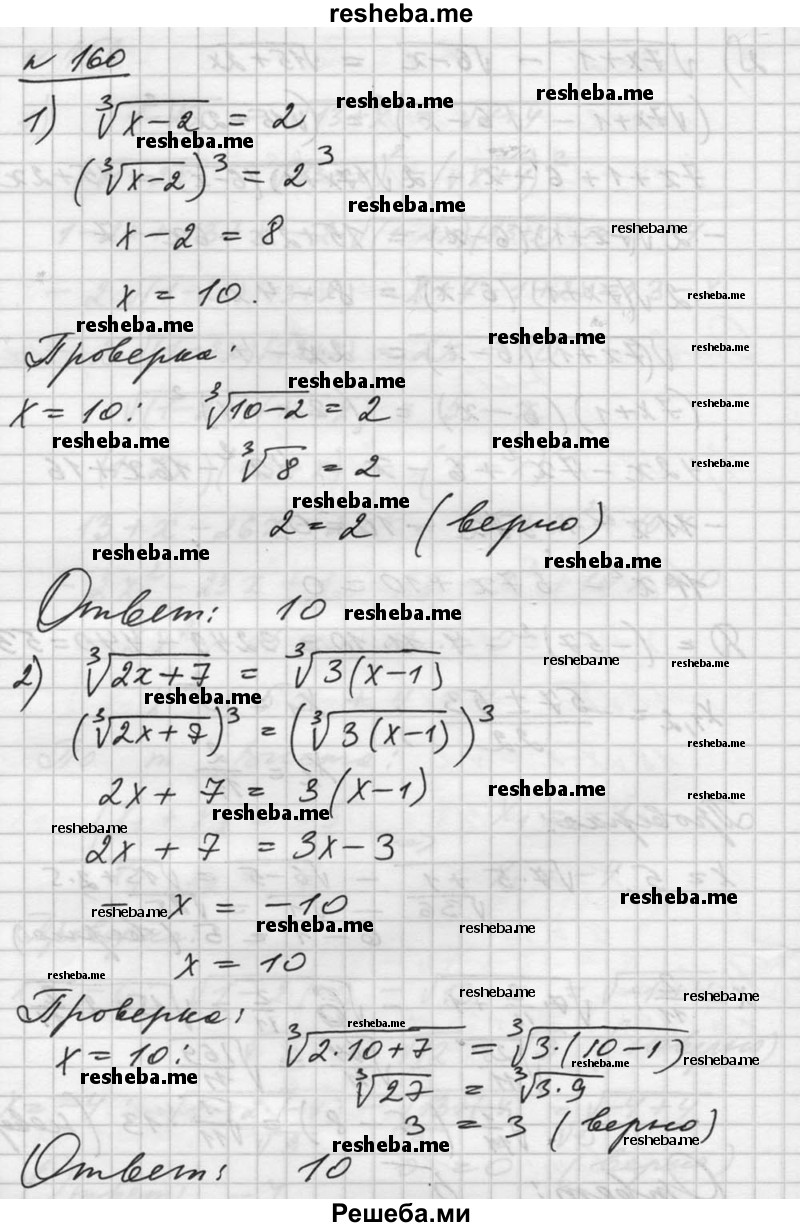 resheba.me
№ 160
1) ∛(x-2) = 2
resheba.me resheba.me
resheba.me
(∛(x-2))³ = 2³
resheba.me
x - 2 = 8
resheba.me
x = 10.
resheba.me
resheba.me
Проверка:
resheba.me
resheba.me
resheba.me
x = 10: ∛(10-2) = 2
resheba.me
resheba.me
resheba.me
∛8 = 2
resheba.me
resheba.me
2 = 2 (верно)
resheba.me
resheba.me
Ответ: 10
resheba.me
2) ∛(2x+7) = ∛(3(x-1))
resheba.me
resheba.me
resheba.me
(∛(2x+7))³ = (∛(3(x-1)))³
resheba.me
2x + 7 = 3(x-1)
resheba.me
resheba.me
resheba.me
resheba.me
2x + 7 = 3x - 3
-x = -10
resheba.me
resheba.me
resheba.me
resheba.me
x = 10
resheba.me
Проверка:
resheba.me
resheba.me
resheba.me
x = 10: ∛(2·10+7) = ∛(3·(10-1))
resheba.me
resheba.me
resheba.me
∛27 = ∛(3·9)
3 = 3 (верно)
resheba.me
resheba.me
Ответ: 10
Решеба.ми